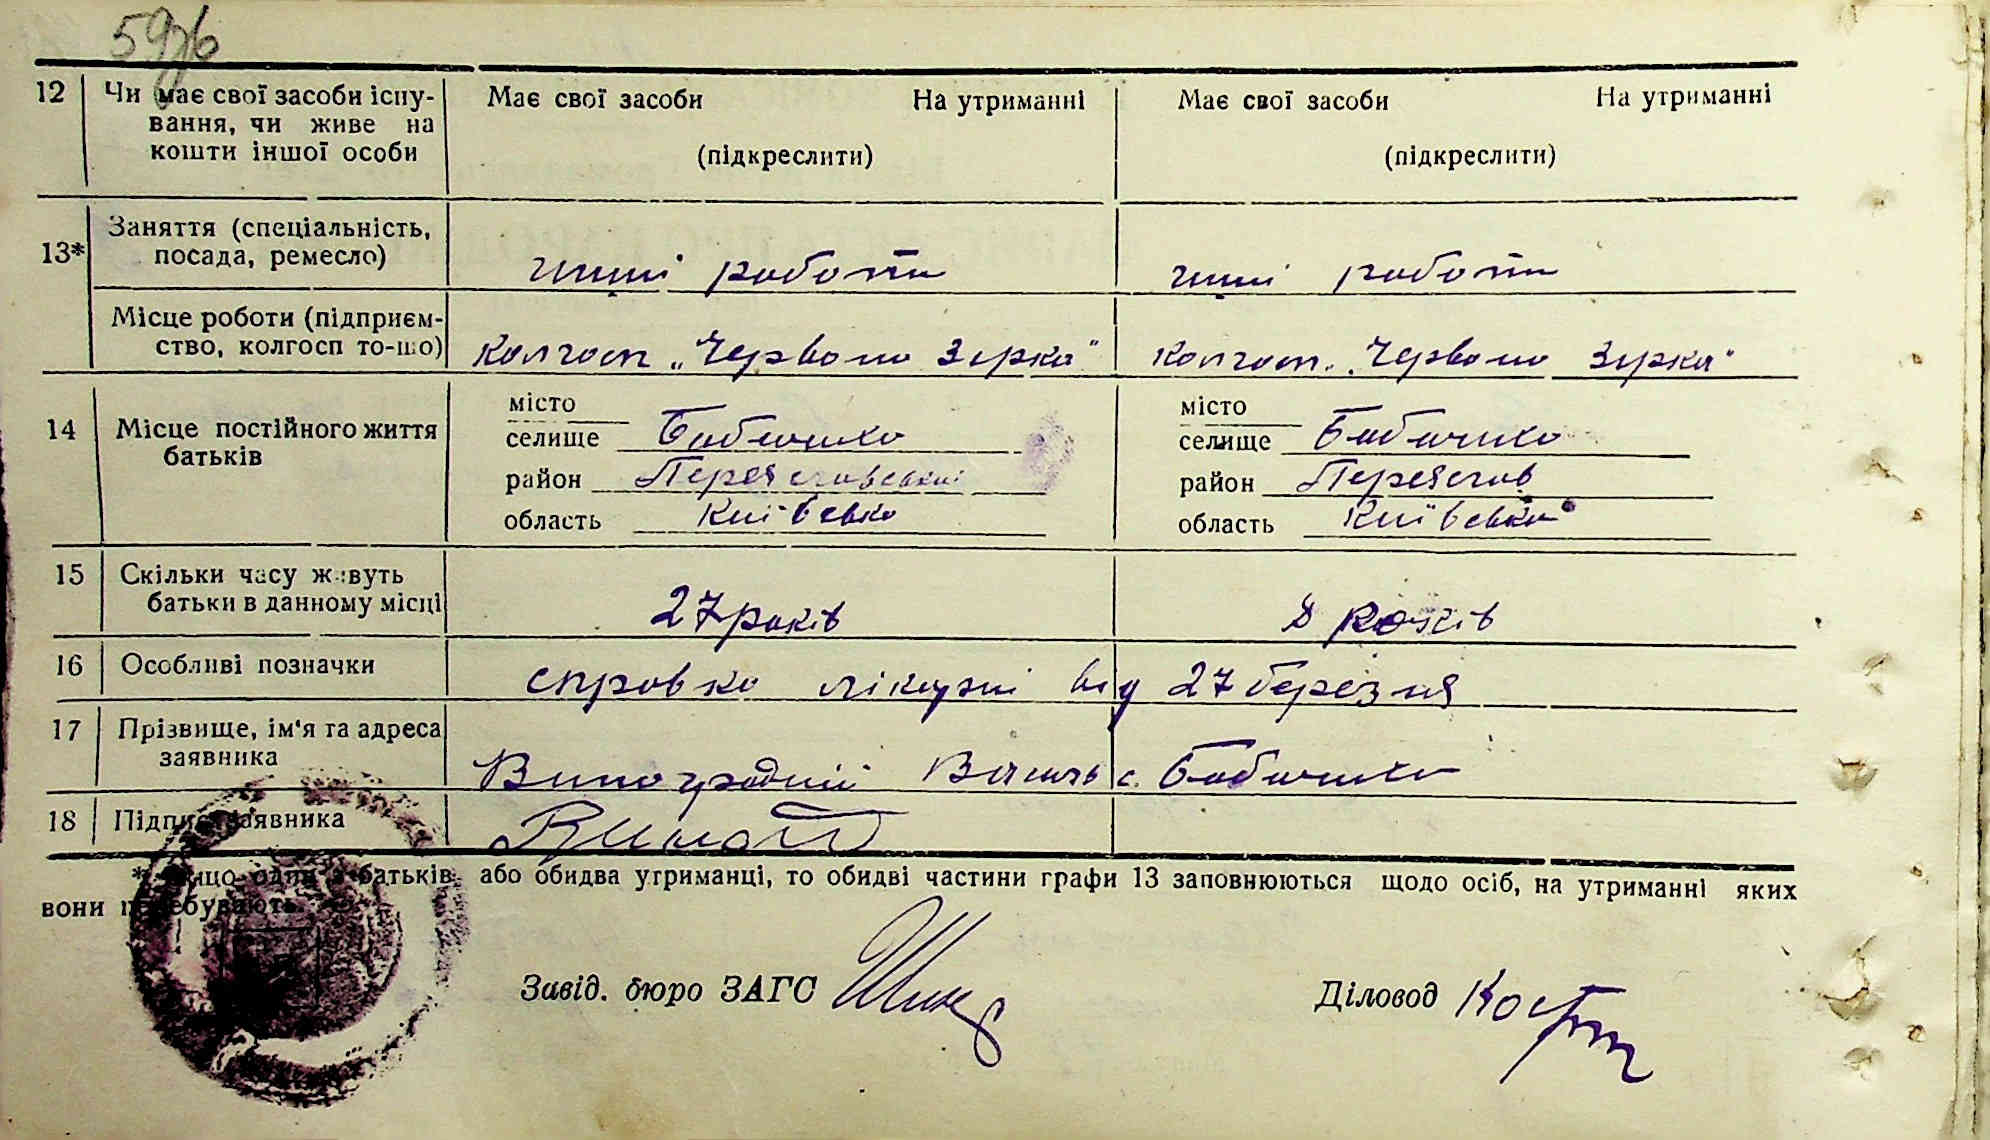 12 Чи має свої засоби існу- Має свої засоби На утриманні Має свої засоби На утриманні
вання, чи живе на
кошти іншої особи (підкреслити) (підкреслити)
13* Заняття (спеціальність,
посада, ремесло) инші роботи инші роботи
Місце роботи (підприєм-
ство, колгосп то-що) Колгосп „Червона Зірка" Колгосп „Червона Зірка"
місто місто
14 Місце постійного життя селище Бабачиха селище Бабачиха
батьків район Переяславський район Переяслав
область Київська область Київська
15 Скільки часу живуть
батьки в данному місці 27 років 8 років
16 Особливі позначки справка лікарні від 27 березня
17 Прізвище, ім'я та адреса
заявника Виноградній Василь с. Бабачиха
18 Підпис заявника
* Якщо один з батьків або обидва утриманці, то обидві частини графи 13 заповнюються щодо осіб, на утриманні яких
вони перебувають.
Завід. бюро ЗАГС Діловод